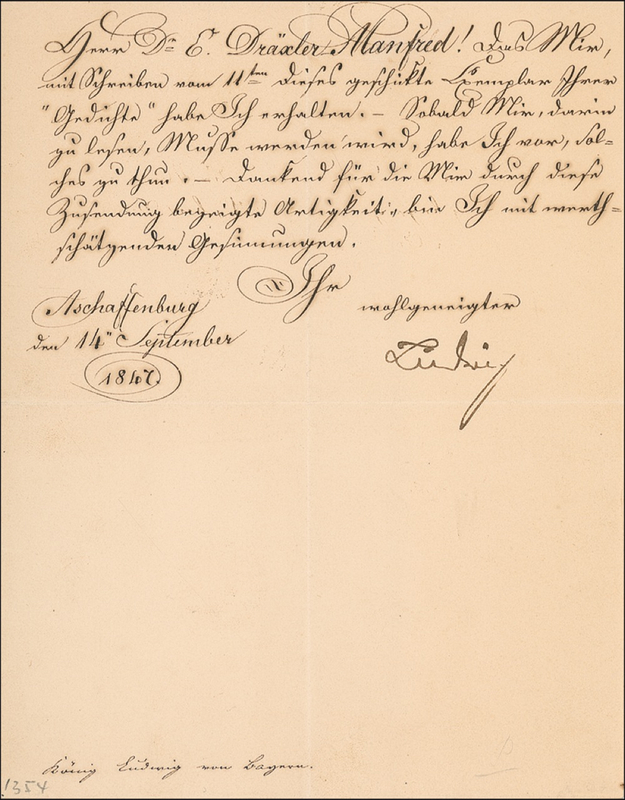 Herr Dr. E. Dräxler Manfred! Das Mir,
mit Schreiben vom 11ten dieses geschikte Exemplar Ihrer
"Gedichte" habe Ich erhalten. – Sobald Mir, darin
zu lesen, Musse werden wird, habe Ich vor, sol=
ches zu thun. – Dankend für die Mir durch diese
Zusendung bezeigte Artigkeit, bin Ich mit werth=
schätzenden Gesinnungen.
Ihr
wohlgeneigter
Ludwig
Aschaffenburg
den 14n September
1847.
König Ludwig von Bayern.
1354